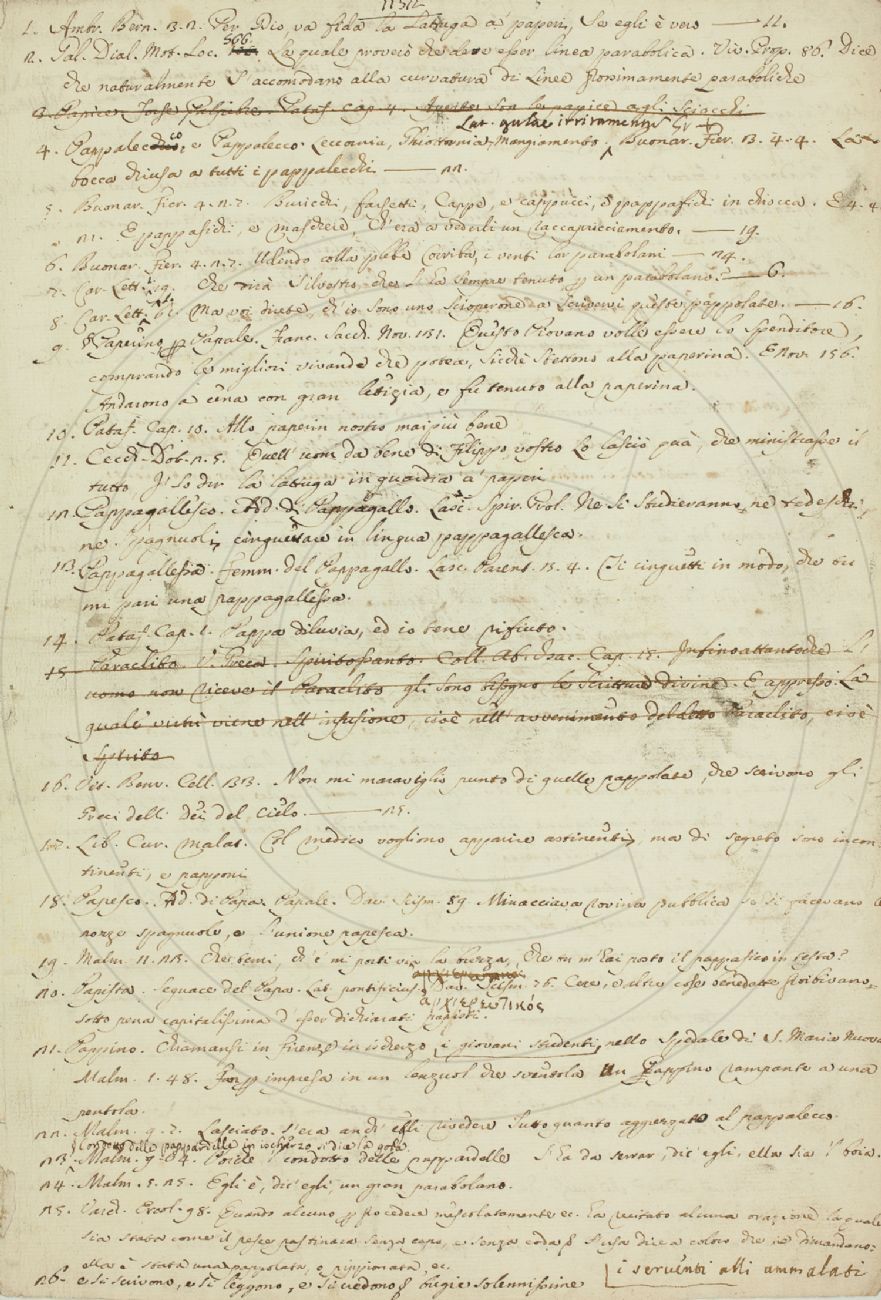 1. Ambr. Bern. 3. 2. Per Dio, va fida la Lattuga a' paperi, Se egli è vero —— 11.
566
2. Gal. Dial. Mot. Loc. La quale proverò che deve esser linea parabolica. Viv. Prop. 86. Dice
che naturalmente s'accomodano alla curvatura di linee prossimamente paraboliche
3. Papice Forse Pataf. Cap. 4. le papice agli sciocchi
Lat. gulae irritamentum
4. Pappalecco, e Pappolecco. Leccornia, Ghiottornia, Mangiamento. Buonar. Fier. 3. 4. 4. La
bocca chiusa a tutti i pappalecchi. —— 22.
5. Buonar. Fier. 4. 2. 7. Buricchi, farsetti, Cappe, e cappucci, E pappafichi in chiocca. E 4. 4
21. E pappafichi, e maschere, Ch'era a vederli un raccapricciamento. —— 19.
6. Buonar. Fier. 4. 2. 7. Udendo colla plebe i venti lor parabolani —— 24.
7. Car. Lett. 1. 19. che dirà Silvestro, che l'ha sempre tenuto p un parabolano? —— 6.
8. Car. Lett. 61. Ma voi direte, ch'io sono uno scioperone a scrivervi queste pappolate. —— 16.
9. Paperino p Papale. Franc. Sacch. Nov. 131. Questo Piovano volle essere lo spenditore,
comprando le migliori vivande che potea, sicchè stettono alla paperina. E Nov. 156.
Andarono a cena con gran letizia, e fu tenuto alla paperina.
10. Pataf. Cap. 10. Allo paperin nostro mai più bene
11. Cecch. Dot. 2. 5. Quell'uom da bene di Filippo vostro Lo lasciò quà, che ministrasse il
tutto, P so dir la lattuga in guardia a' paperi
12. Pappagallesco. Add. di Pappagallo. Lasc. Spir. Prol. Ne si studieranno, nè tedeschi,
ne Spagnuoli, cinguettare in lingua pappagallesca.
13. Pappagallessa. Femm. del Pappagallo. Lasc. Parent. 3. 4. Ci cinguetti in modo, che tu
mi pari una pappagallessa.
14. Pataf. Cap. 1. Pappa diluvia, ed io tene rifiuto.
15 Paraclito. V. Greca. Spiritossanto. Coll. Ab. Isac. Cap. 15. Infinoattantochè L'
uomo non riceve il Paraclito gli sono bisogno le scritture divine. E appresso. La
quale virtù viene nell'infusione, cioè nell'avvenimento del detto Paraclito, cioè
Spirito
16. Vit. Benv. Cell. 133. Non mi maraviglio punto di quelle pappolate, che scrivono gli
Greci delli Dei del Cielo. —— 25.
17. Lib. Cur. Malat. Col medico vogliono apparire astinenti, ma di segreto sono incon-
tinenti, e papponi
18. Papesco. Add. di Papa. Papale. Dav. Scism. 89 Minacciava rovina pubblica se si facevano le
nozze spagnuole, e l'unione papesca.
19. Malm. 11. 23. che tu m'hai posto il pappafico in testa?
20. Papista. Seguace del Papa. Lat. pontificius, Dav. Scism. 76. Cere, e altre cose benedette proibivano
ἀρχιερατικός
sotto pena capitalissima d'esser dichiarati papisti.
21. Pappino. Chiamansi in Firenze in ischerzo, i giovani studenti, nello Spedale di S. Maria Nuova
Malm. 1. 48. p impresa in un lenzuol che sventola Un Pappino rampante a una
pentola.
22. Malm. 9. 7. Lasciato s'era anch'egli rivedere Tutto quanto aggiezzato al pappalecco.
Condotto delle pappardelle in ischerzo si dice la gola
23. Malm. 9. 54. Poichè 'l condotto delle pappardelle S'ha da serrar, dic'egli, ella sia 'l boia.
24. Malm. 5. 25. Egli è, dic'egli, un gran parabolano.
25. Varch. Ercol. 98. Quando alcuno p procedere mescolatamente ec. ha recitato alcuna orazione la quale
sia stata come il pesce pastinaca senza capo, e senza coda, s'usa dire a coloro che ne dimandano:
ella è stata una pappolata, o pippionata, ec.
26. e si scrivono, e si leggono, e si vedono bugie solennissime
i serventi alli ammalati